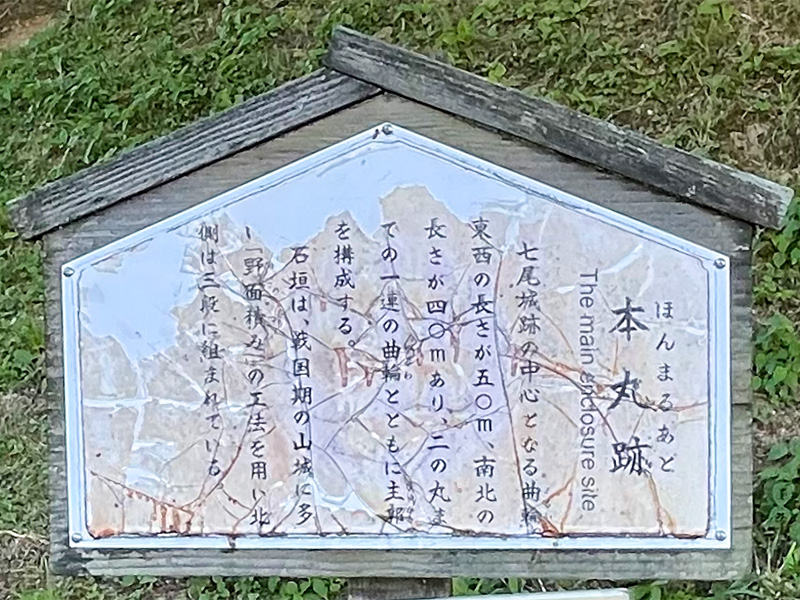 ほんまるあと
本丸跡
The main enclosure site
七尾城跡の中心となる曲輪
東西の長さが五〇m、南北の
長さが四〇mあり、二の丸ま
での一連の曲輪とともに主郭
を構成する。
石垣は、戦国期の山城に多
い「野面積み」の工法を用い北
側は三段に組まれている